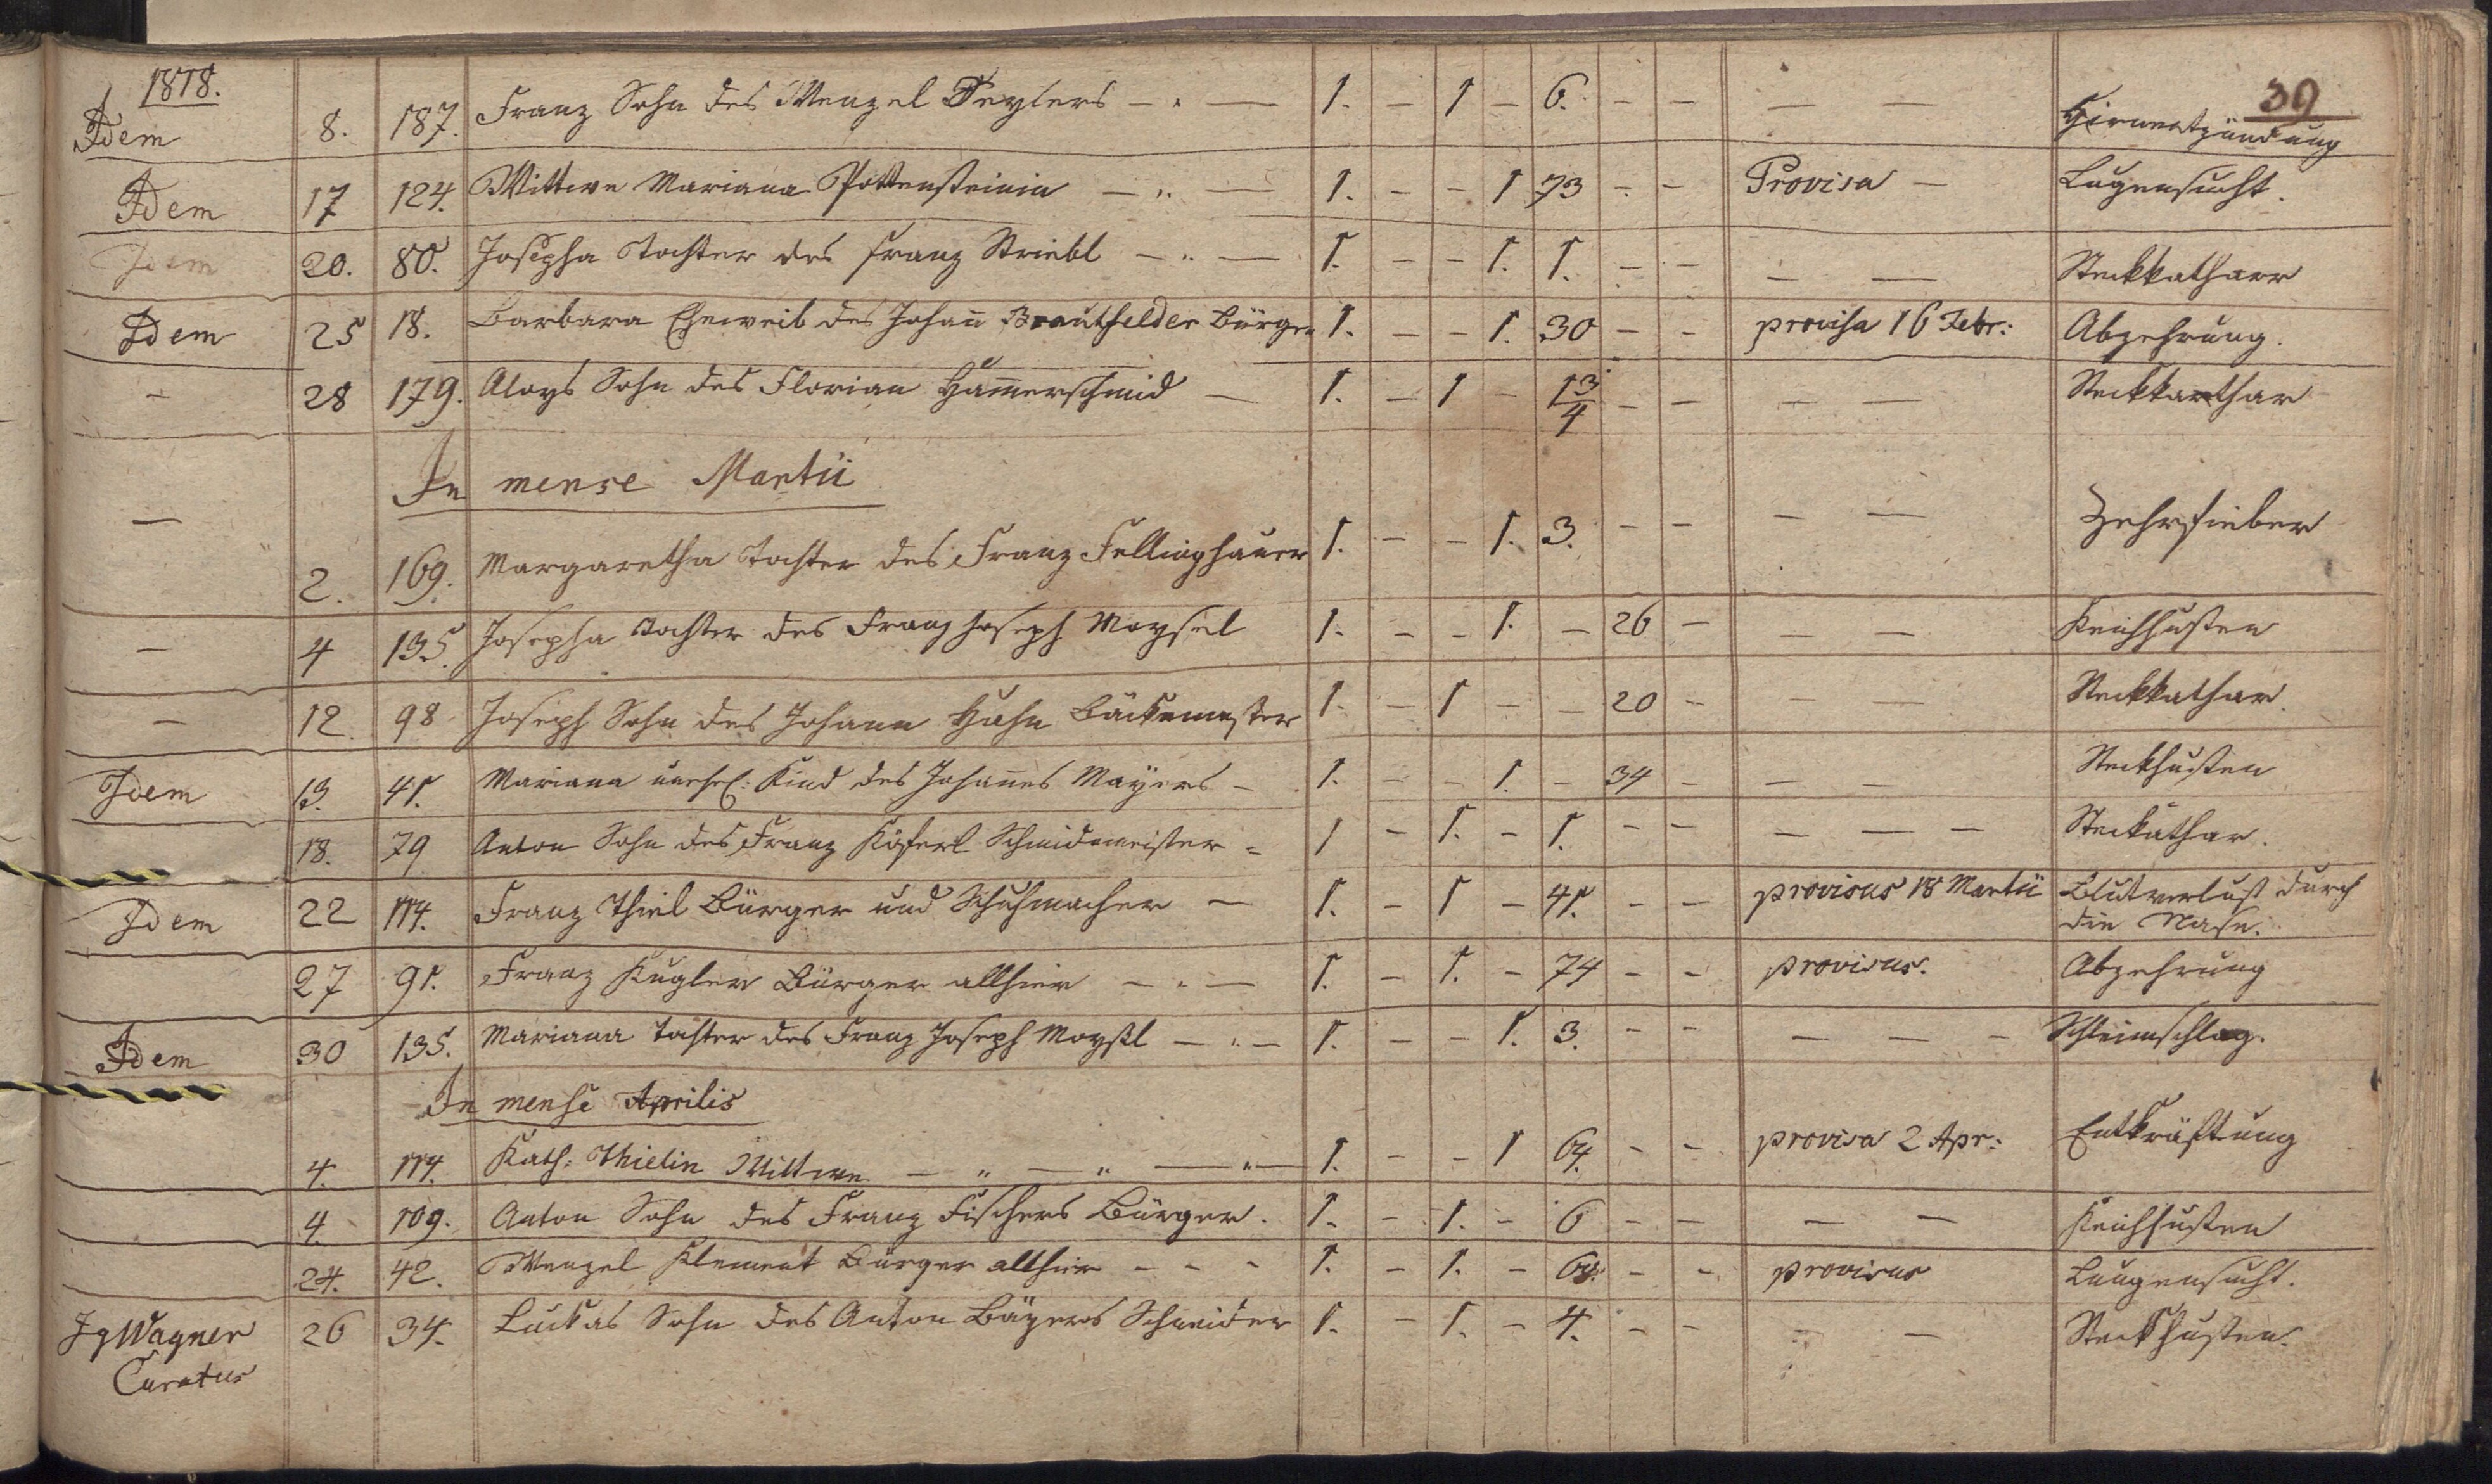 1818.
39
Idem 8. 187. Franz Sohn des Wenzel Peylers — " — 1. - 1 - 6. - - — — Hirnentzündung
Idem 17 124. Wittwe Mariana Pottensteinin — " — 1. - - 1 73 - - Provisa — Lugensucht.
Idem 20. 80. Josepha Tochter des Franz Striebl — " — 1. - - 1. 1. - - — — Steckkatharr
Idem 25 18. Barbara Eheweib des Johañ Brautfelder Bürger 1. - - 1. 30 - - provisa 16 Febr: Abzehrung.
— 28 179. Aloys Sohn des Florian Ham̄erschmid — 1. - 1 - 1 3/4 - - — — Steckkarthar
In mense Martii
— 2. 169. Margaretha Tochter des Franz Fellinghauer 1. - - 1. 3. - - — — Zehrfieber
— 4 135. Josepha Tochter des Franz Joseph Moysel 1. - - 1. - 26 - — — Keichhusten
— 12. 98 Joseph Sohn des Johann Hahn Bäckemester 1. - 1 - - 20 - — — Steckkathar.
Idem 13. 41. Mariana unehel: Kind des Johañes Mayers - 1. - - 1. - 34 - — — Steckhusten
18. 79 Anton Sohn des Franz Köferl Schmidmeister - 1 - 1. - 1. - - — — — Steckathar.
Idem 22 114. Franz Thiel Bürger und Schuhmacher — 1. - 1 - 41. - - provisus 18 Martii Blutverlust durch
die Nase.
27 91. Franz Kugler Bürger allhier — " — 1. - 1. - 74 - - provisus. Abzehrung
Idem 30 135. Mariana Tochter des Franz Joseph Moyßl — " — 1. - - 1. 3. - - — — - Schleimschlag.
In mense Aprilis
4. 114. Kath: Thielin Wittwe — " — " — " — 1. - - 1 64. - - provisa 2 Apr: Entkräftung
4. 109. Anton Sohn des Franz Fischers Bürger. 1. - 1. - 6 - - — — Keichhusten
24. 42. Wenzel Klement Bürger allhier - - - 1. - 1. - - - provisus Lungensucht.
Jg Wagner 26 34. Luckas Sohn des Anton Bäyers Schneider 1. - 1. - 4. - - - — Steckhusten.
Curatus